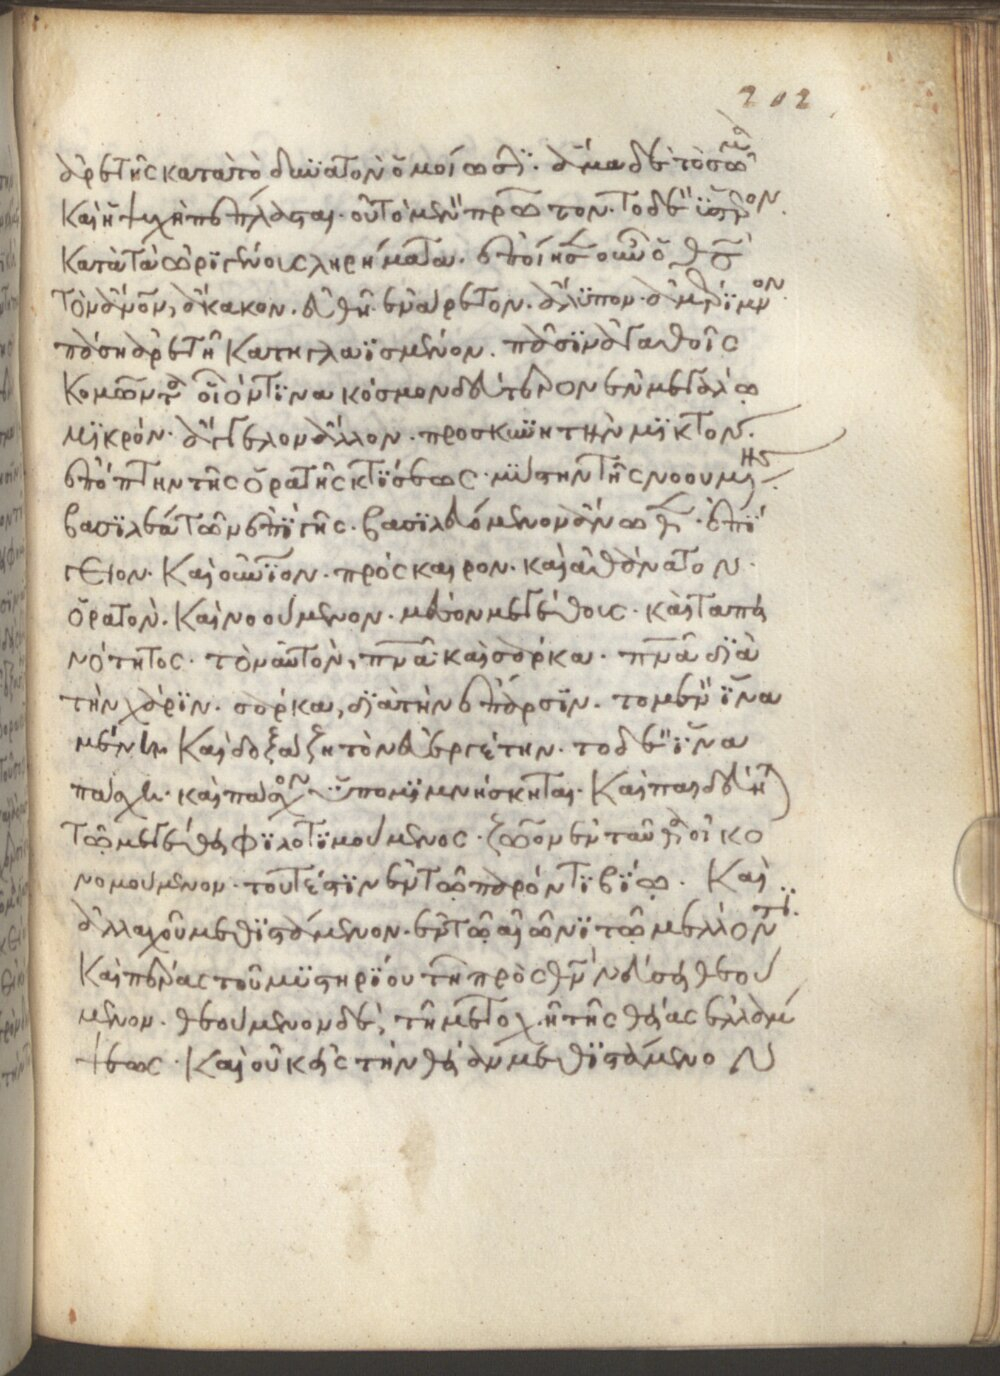 202
ἀρετῆς κατὰ τὸ δυνατὸν ὁμοίωσιν. ἅμα δὲ τὸ σῶμα
καὶ ἡ ψυχὴ πέπλασται. οὐ τὸ μὲν πρῶτον. τὸ δὲ ὕστερον
κατὰ τὰ ὠριγένους ληρήματα. ἐποίησεν οὖν ὁ θς
τὸν ἄνον, ἄκακον. εὐθῆ. ἐνάρετον. ἄλυπον. ἀμέριμνον
πάση ἀρετῆ κατηγλαϊσμένον. πᾶσιν ἀγαθοῖς
κομῶντα οἷόν τινα κόσμον δεύτερον ἐν μεγάλῳ
μικρόν. ἄγγελον ἄλλον. προσκυνητὴν μικτόν.
ἐπόπτην τῆς ὁρατῆς κτίσεως. μύστην τῆς νοουμένης.
βασιλέα τῶν ἐπὶ γῆς. βασιλευόμενον ἄνωθεν. ἐπί
γειον. καὶ οὐνιον. πρόσκαιρον. καὶ ἀθάνατον.
ὁρατὸν. καὶ νοούμενον. μέσον μεγέθους. καὶ ταπει
νότητος. τὸν αὐτὸν, πνα καὶ σάρκα. πνα διὰ
τὴν χάριν. σάρκα, διὰ τὴν ἔπαρσιν. τὸ μὲν ἵνα
μένῃ καὶ δοξάζῃ τὸν εὐεργέτην. τὸ δὲ ἵνα
πάσχῃ. καὶ πάσχον ὑπομιμνήσκηται. καὶ παιδεύηται
τῷ μεγέθει φιλοτιμούμενος. ζῶον ἐνταῦθα οἰκο
νομούμενον. τουτέστιν ἐν τῷ παρόντι βίῳ. καὶ
ἀλλαχοῦ μεθιστάμενον. ἐν τῷ αἰῶνι τῷ μέλλοντι.
καὶ πέρας τοῦ μυστηρίου τῆ πρὸς θν νεύσει θεού
μενον. θεούμενον δὲ, τῆ μετοχῆ τῆς θείας ἐλλάμ
ψεως. καὶ οὐκ εἰς τὴν θείαν μεθιστάμενον